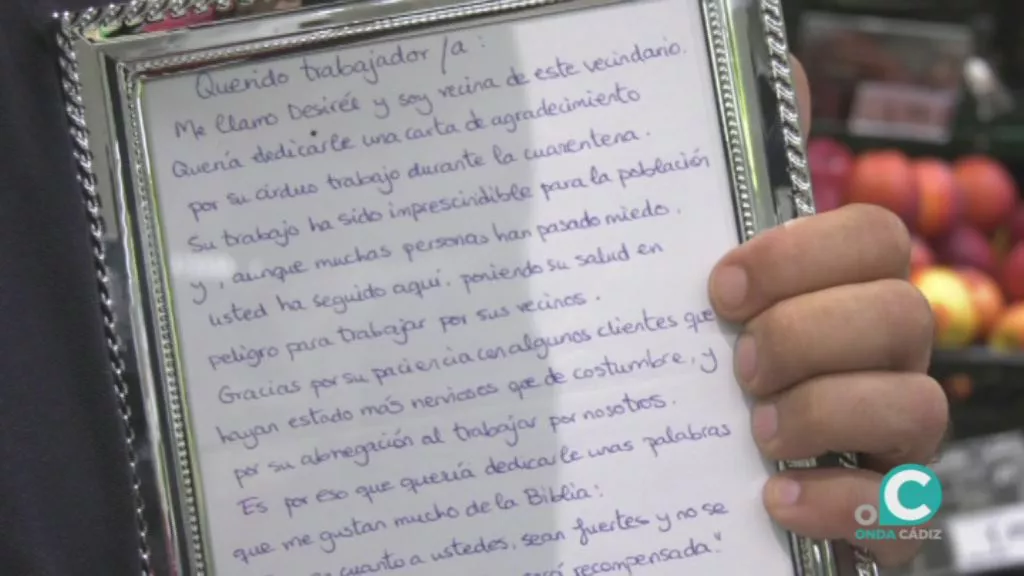 Querido trabajador/a:
Me llamo Desirée y soy vecina de este vecindario.
Quería dedicarle una carta de agradecimiento
por su arduo trabajo durante la cuarentena.
Su trabajo ha sido imprescindible para la población
y, aunque muchas personas han pasado miedo,
usted ha seguido aquí, poniendo su salud en
peligro para trabajar por sus vecinos.
Gracias por su paciencia con algunos clientes que
hayan estado más nerviosos que de costumbre, y
por su abnegación al trabajar por nosotros.
Es por eso que quería dedicarle unas palabras
que me gustan mucho de la Biblia:
cuanto a ustedes, sean fuertes y no se
recompensada."
ONDA CÁDIZ